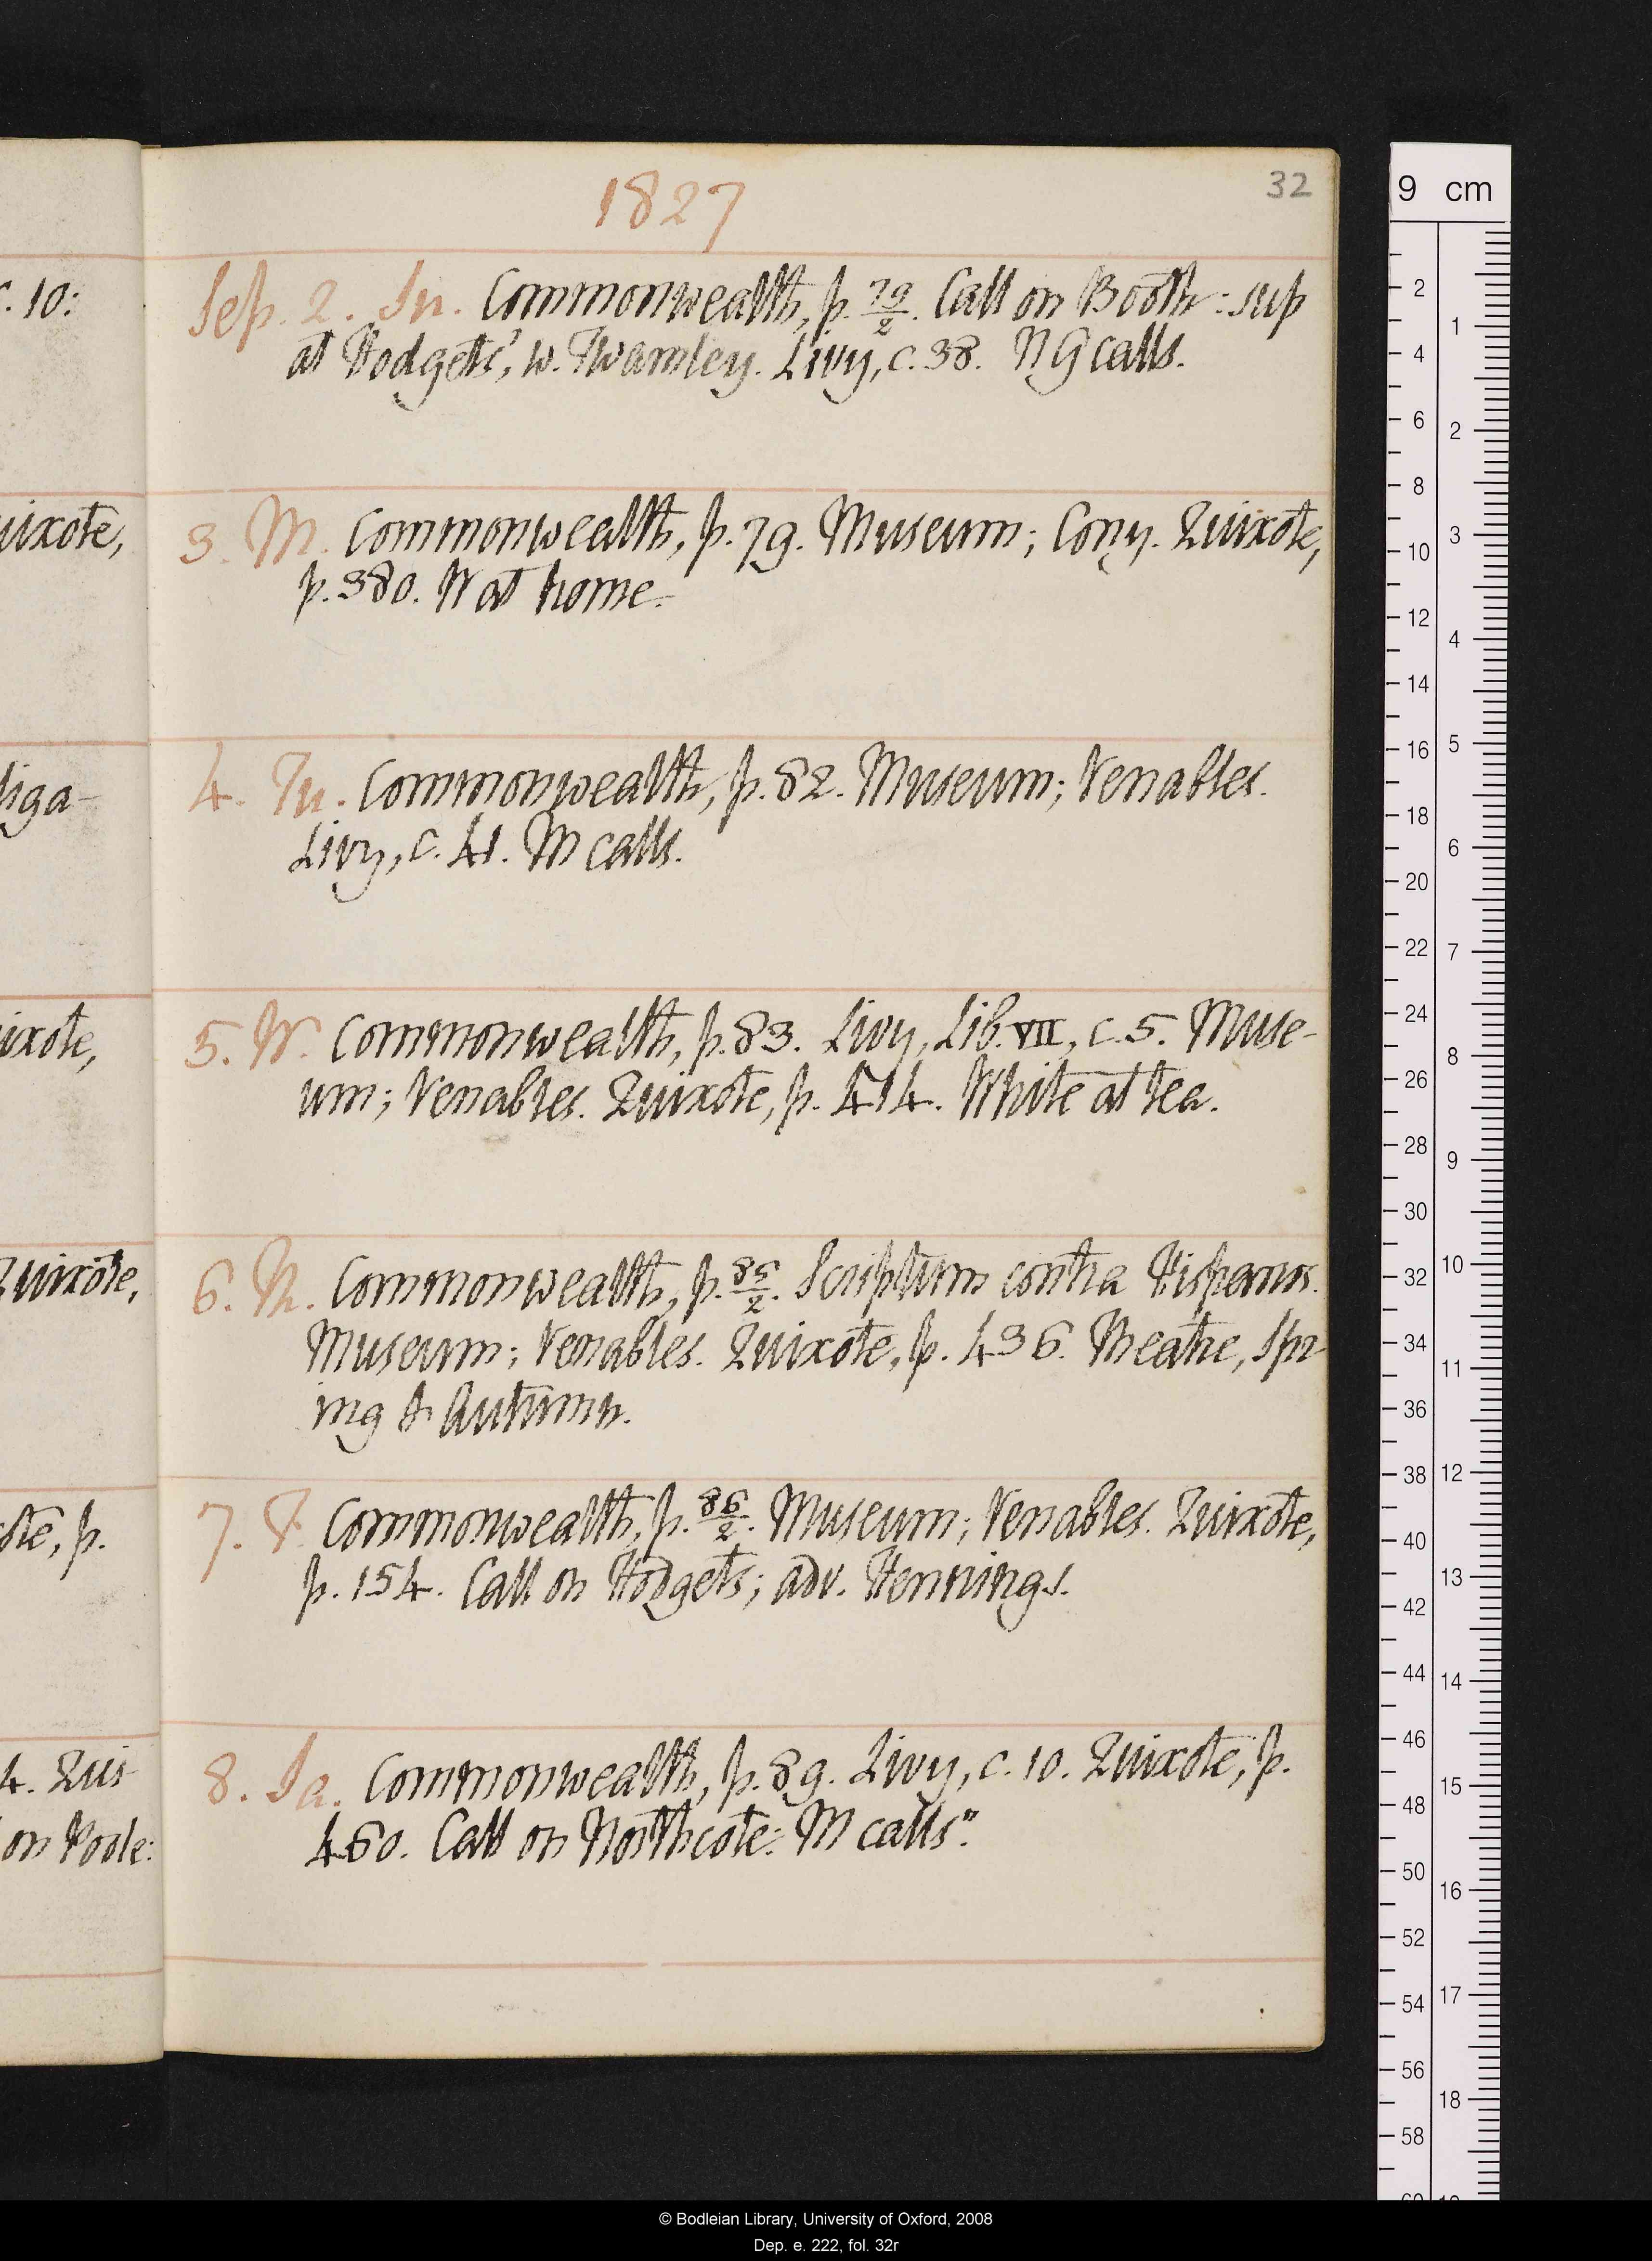 1827
32
Sep. 2. Su. Commonwealth, p. 79/2. Call on Booth: sup
at Hodgets', w. Twamley. Livy, c. 38. N G calls.
3. M. Commonwealth, p. 79. Museum; Cony. Quixote,
p. 380. W at home.
4. Tu. Commonwealth, p. 82. Museum; Venables.
Livy, c. 41. M calls.
5. W. Commonwealth, p. 83. Livy, Lib. VII, c. 5. Muse-
um; Venables. Quixote, p. 414. White at tea.
6. Th. Commonwealth, p. 85/2. Scriptum contra Hispanos.
Museum; Venables. Quixote, p. 436. Theatre, Spr
ing & Autumn.
7. F. Commonwealth, p. 86/2. Museum; Venables. Quixote,
p. 154. Call on Hodgets; adv. Hennings.
8. Sa. Commonwealth, p. 89. Livy, c. 10. Quixote, p.
460. Call on Northcote: M calls".
c. 10:
uixote,
liga-
ixote,
Quixote,
ote, p.
4. Quix
on Poole:
9 cm
2
4
6
8
10
12
14
16
18
20
22
24
26
28
30
32
34
36
38
40
42
44
46
48
50
52
54
56
58
1
2
3
4
5
6
7
8
9
10
11
12
13
14
15
16
17
18
© Bodleian Library, University of Oxford, 2008
Dep. e. 222, fol. 32r